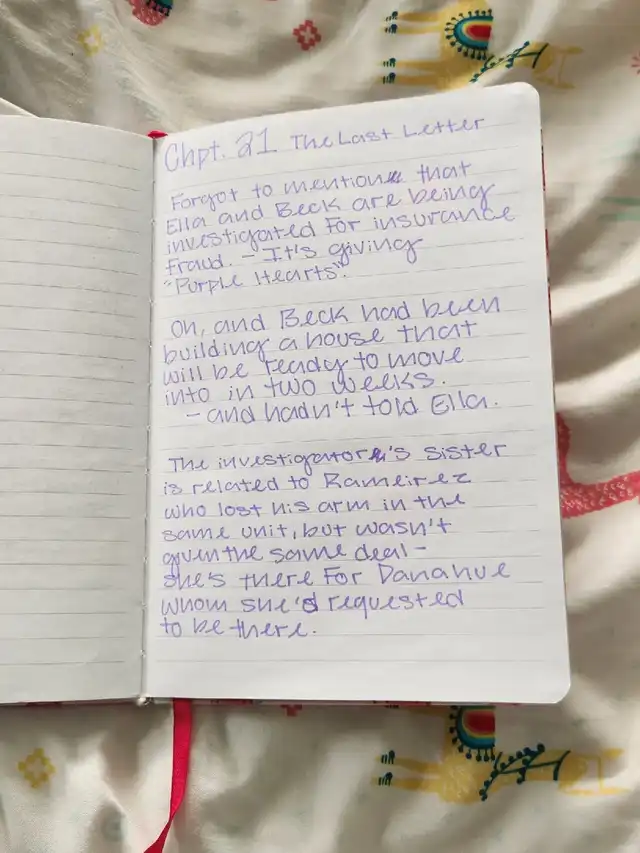 Chpt. 21 The Last Letter
Forgot to mention that
Ella and Beck are being
investigated for insurance
fraud. - It's giving
"Purple Hearts".
Oh, and Beck had been
building a house that
will be ready to move
into in two weeks.
- and hadn't told Ella.
The investigator's sister
is related to Rameirez
who lost his arm in the
same unit, but wasn't
given the same deal -
she's there for Danahue
whom she'd requested
to be there.